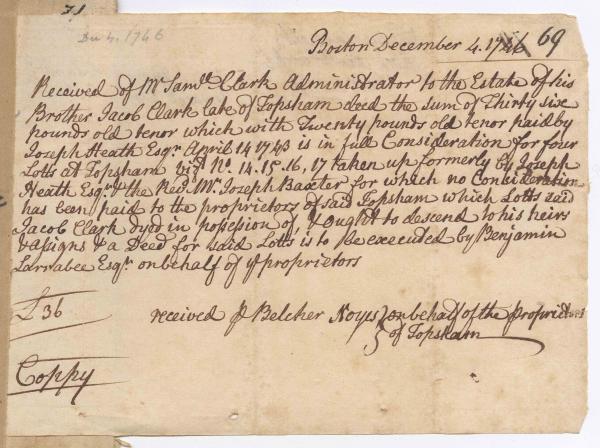 71
Dec 4. 1746
Boston December 4. 1746 69
Received of Mr Samll Clark Administrator to the Estate of his
Brother Jacob Clark late of Topsham deced the sum of Thirty six
pounds old tenor which with Twenty pounds old tenor paid by
Joseph Heath Esqr April 14 1743 is in full Consideration for four
Lotts at Topsham vizt No. 14. 15. 16, 17 taken up formerly by Joseph
Heath Esqr & the Revd Mr. Joseph Baxter for which no Consideration
has been paid to the proprietors of said Topsham which Lotts said
Jacob Clark dyed in possesion of, & ought to descend to his heirs
& asigns & a Deed for said Lotts is to be executed by Benjamin
Larrabee Esqr on behalf of ye proprietors
£36
received p Belcher Noyes on behalf of the proprietors
of Topsham
Coppy